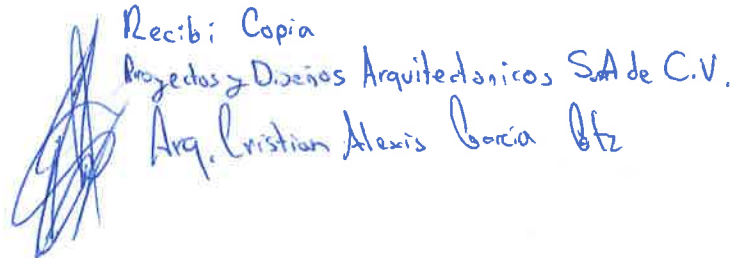 Recibi Copia
Proyectos y Diseños Arquitectonicos S.A de C.V.
Arq. Cristian Alexis García